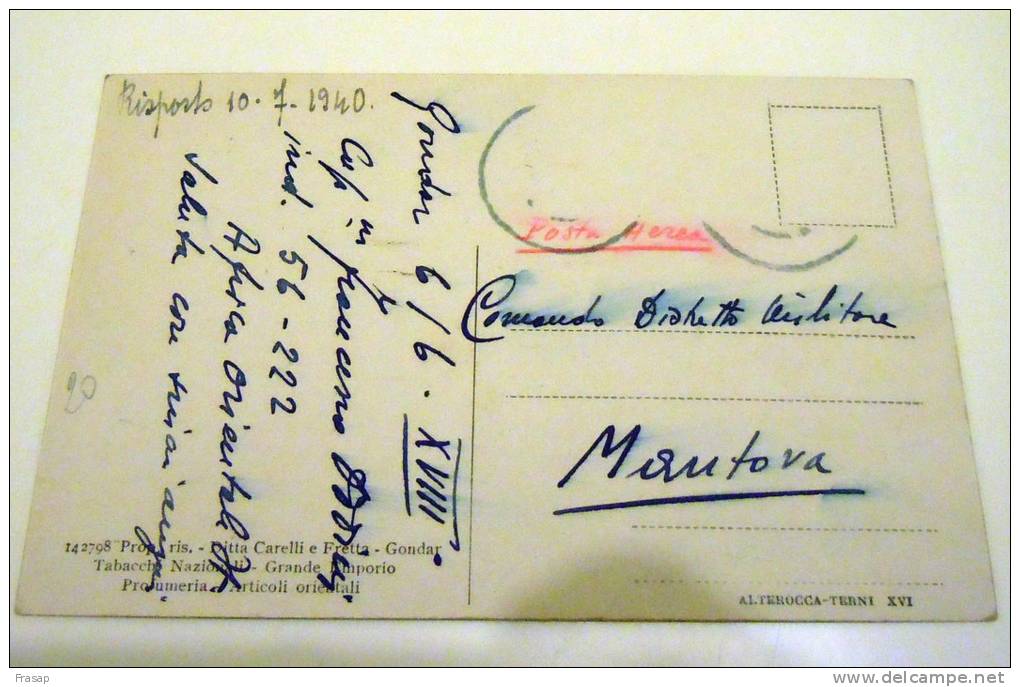 Risposto 10.7.1940.
Gondar 6/6. XVIII.
Cap francesco
ind. 56-222
Africa Orientale
Saluta con
Posta Aerea
Comando Distretto Militare
Mantova
20
142798 Prop. ris. - Ditta Carelli e Fretta - Gondar
Tabacchi Nazionali - Grande Emporio
Profumeria - Articoli orientali
ALTEROCCA-TERNI XVI
Frasap
www.delcampe.net